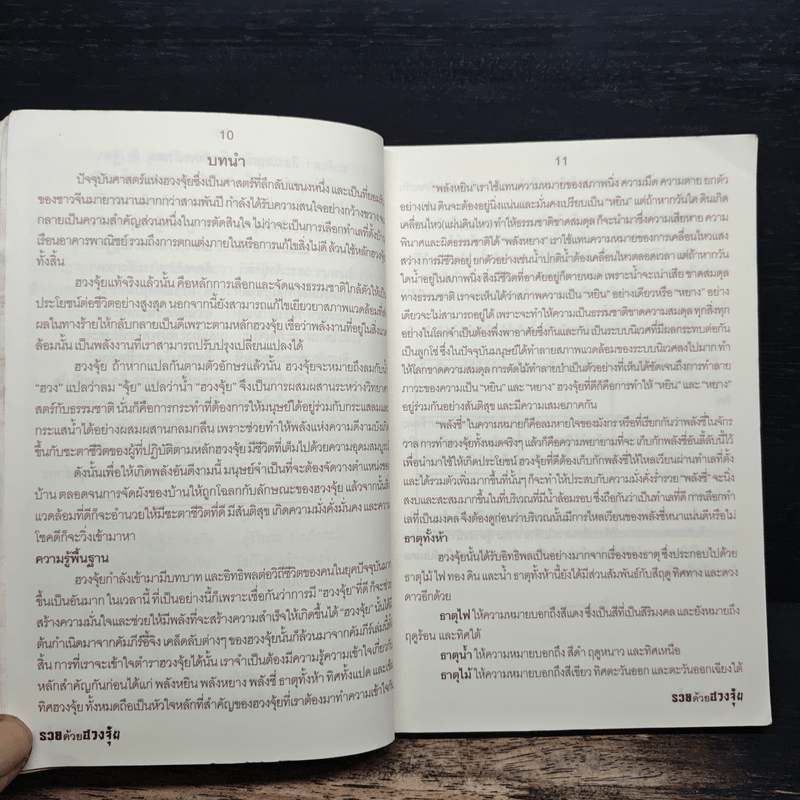 10
บทนำ
ปัจจุบันศาสตร์แห่งฮวงจุ้ยซึ่งเป็นศาสตร์ที่ลึกลับแขนงหนึ่ง และเป็นที่ยอมรับ
ของชาวจีนมายาวนานมากกว่าสามพันปี กำลังได้รับความสนใจอย่างกว้างขวาง
กลายเป็นความสำคัญส่วนหนึ่งในการตัดสินใจ ไม่ว่าจะเป็นการเลือกทำเลที่ตั้ง
เรือนอาคารพาณิชย์ รวมถึงการตกแต่งภายในหรือการแก้ไขสิ่งไม่ดี ล้วนใช้หลักฮวงจุ้ย
ทั้งสิ้น
ฮวงจุ้ยแท้จริงแล้วนั้น คือหลักการเลือกและจัดแจงธรรมชาติใกล้ตัวให้เป็น
ประโยชน์ต่อชีวิตอย่างสูงสุด นอกจากนี้ยังสามารถแก้ไขเยียวยาสภาพแวดล้อมที่
ผลในทางร้ายให้กลับกลายเป็นดีเพราะตามหลักฮวงจุ้ย เชื่อว่าพลังงานที่อยู่ในสิ่งแวด
ล้อมนั้น เป็นพลังงานที่เราสามารถปรับปรุงเปลี่ยนแปลงได้
ฮวงจุ้ย ถ้าหากแปลกันตามตัวอักษรแล้วนั้น ฮวงจุ้ยจะหมายถึงลมกับน้ำ
"ฮวง" แปลว่าลม "จุ้ย" แปลว่าน้ำ "ฮวงจุ้ย" จึงเป็นการผสมผสานระหว่างวิทยา
ศาสตร์กับธรรมชาติ นั่นก็คือการกระทำที่ต้องการให้มนุษย์ได้อยู่ร่วมกับกระแสลมและ
กระแสน้ำได้อย่างผสมผสานกลมกลืน เพราะช่วยทำให้พลังแห่งความดีงามบังเกิด
ขึ้นกับชะตาชีวิตของผู้ที่ปฏิบัติตามหลักฮวงจุ้ย มีชีวิตที่เต็มไปด้วยความอุดมสมบูรณ์
ดังนั้นเพื่อให้เกิดพลังอันดีงามนี้ มนุษย์จำเป็นที่จะต้องจัดวางตำแหน่งของ
บ้าน ตลอดจนการจัดผังของบ้านให้ถูกโฉลกกับลักษณะของฮวงจุ้ย แล้วจากนั้น
แวดล้อมที่ดีก็จะอำนวยให้มีชะตาชีวิตที่ดี มีสันติสุข เกิดความมั่งคั่งมั่นคง และความ
โชคดีก็จะวิ่งเข้ามาหา
ความรู้พื้นฐาน
ฮวงจุ้ยกำลังเข้ามามีบทบาท และอิทธิพลต่อวิถีชีวิตของคนในยุคปัจจุบันมาก
ขึ้นเป็นอันมาก ในเวลานี้ ที่เป็นอย่างนี้ก็เพราะเชื่อกันว่าการมี "ฮวงจุ้ย"ที่ดี ก็จะช่วย
สร้างความมั่นใจและ ช่วยให้มีพลังที่จะสร้างความสำเร็จให้เกิดขึ้นได้ "ฮวงจุ้ย" นั้นได้มี
ต้นกำเนิดมาจากคัมภีร์อี้จิง เคล็ดลับต่างๆ ของฮวงจุ้ยนั้นก็ล้วนมาจากคัมภีร์เล่มนี้ทั้ง
สิ้น การที่เราจะเข้าใจตำราฮวงจุ้ยได้นั้น เราจำเป็นต้องมีความรู้ความเข้าใจเกี่ยวกับ
หลักสำคัญกันก่อนได้แก่ พลังหยิน พลังหยาง พลังชี่ ธาตุทั้งห้า ทิศทั้งแปด และ
ทิศฮวงจุ้ย ทั้งหมดถือเป็นหัวใจหลักที่สำคัญของฮวงจุ้ยที่เราต้องมาทำความเข้าใจกัน
รวยด้วยฮวงจุ้ย
11
"พลังหยิน" เราใช้แทนความหมายของสภาพนิ่ง ความมืด ความตาย ยกตัว
อย่างเช่น ดินจะต้องอยู่นิ่งแน่นและมั่นคงเปรียบเป็น "หยิน" แต่ถ้าหากวันใด ดินเกิด
เคลื่อนไหว(แผ่นดินไหว) ทำให้ธรรมชาติขาดสมดุล ก็จะนำมาซึ่งความเสียหาย ความ
พินาศและผิดธรรมชาติได้ "พลังหยาง" เราใช้แทนความหมายของการเคลื่อนไหวแสง
สว่าง การมีชีวิตอยู่ ยกตัวอย่างเช่นน้ำปกติน้ำต้องเคลื่อนไหวตลอดเวลา แต่ถ้าหากวัน
ใดน้ำอยู่ในสภาพนิ่ง สิ่งมีชีวิตที่อาศัยอยู่ก็ตายหมด เพราะน้ำจะเน่าเสีย ขาดสมดุล
ทางธรรมชาติ เราจะเห็นได้ว่าสภาพความเป็น "หยิน" อย่างเดียวหรือ "หยาง" อย่าง
เดียวจะไม่สามารถอยู่ได้ เพราะจะทำให้ความเป็นธรรมชาติขาดความสมดุล ทุกสิ่งทุก
อย่างในโลกจำเป็นต้องพึ่งพาอาศัยซึ่งกันและกัน เป็นระบบนิเวศที่มีผลกระทบต่อกัน
เป็นลูกโซ่ ซึ่งในปัจจุบันมนุษย์ได้ทำลายสภาพแวดล้อมของระบบนิเวศลงไปมาก ทำ
ให้โลกขาดความสมดุล การตัดไม้ทำลายป่าเป็นตัวอย่างที่เห็นได้ชัดเจนถึงการทำลาย
ภาวะของความเป็น "หยิน" และ "หยาง" ฮวงจุ้ยที่ดีก็คือการทำให้ "หยิน" และ "หยาง"
อยู่ร่วมกันอย่างสันติสุข และมีความเสมอภาคกัน
"พลังชี่" ในความหมายก็คือลมหายใจของมังกร หรือที่เรียกกันว่าพลังชี่ในจักร
วาล การทำฮวงจุ้ยทั้งหมดจริงๆ แล้วก็คือความพยายามที่จะ เก็บกักพลังชี่อันลี้ลับนี้ไว้
เพื่อนำมาใช้ให้เกิดประโยชน์ ฮวงจุ้ยที่ดีต้องเก็บกักพลังชี่ให้ไหลเวียนผ่านทำเลที่ตั้ง
และได้รวมตัวเพิ่มมากขึ้นที่นั้นๆ ก็จะทำให้ประสบกับความมั่งคั่งร่ำรวย "พลังชี่" จะนิ่ง
สงบและสะสมมากขึ้นในที่บริเวณที่มีน้ำล้อมรอบ ซึ่งถือกันว่าเป็นทำเลที่ดี การเลือกทำ
เลที่เป็นมงคล จึงต้องดูก่อนว่าบริเวณนั้นมีการไหลเวียนของพลังชี่หนาแน่นดีหรือไม่
ธาตุทั้งห้า
ฮวงจุ้ยนั้นได้รับอิทธิพลเป็นอย่างมากจากเรื่องของธาตุ ซึ่งประกอบไปด้วย
ธาตุไม้ ไฟ ทอง ดิน และน้ำ ธาตุทั้งห้านี้ยังได้มีส่วนสัมพันธ์กับสีฤดู ทิศทาง และดวง
ดาวอีกด้วย
ธาตุไฟ ให้ความหมายบอกถึงสีแดง ซึ่งเป็นสีที่เป็นสิริมงคล และยังหมายถึง
ฤดูร้อน และทิศใต้
ธาตุน้ำ ให้ความหมายบอกถึง สีดำ ฤดูหนาว และทิศเหนือ
ธาตุไม้ ให้ความหมายบอกถึงสีเขียว ทิศตะวันออก และตะวันออกเฉียงใต้
รวยด้วยฮวงจุ้ย